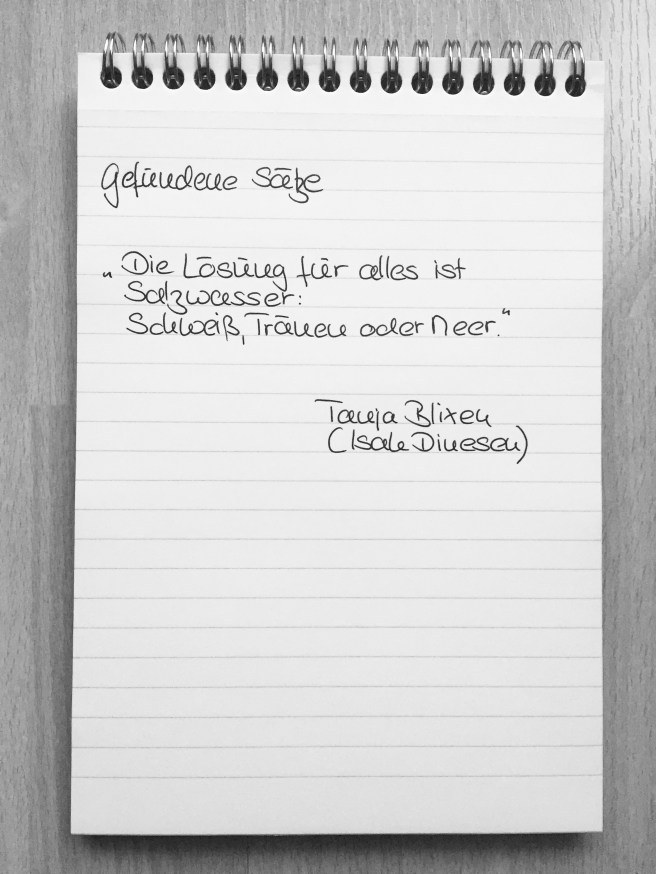 Gefundene Sätze
„Die Lösung für alles ist
Salzwasser:
Schweiß, Tränen oder Meer.“
Tanja Blixen
(Isak Dinesen)